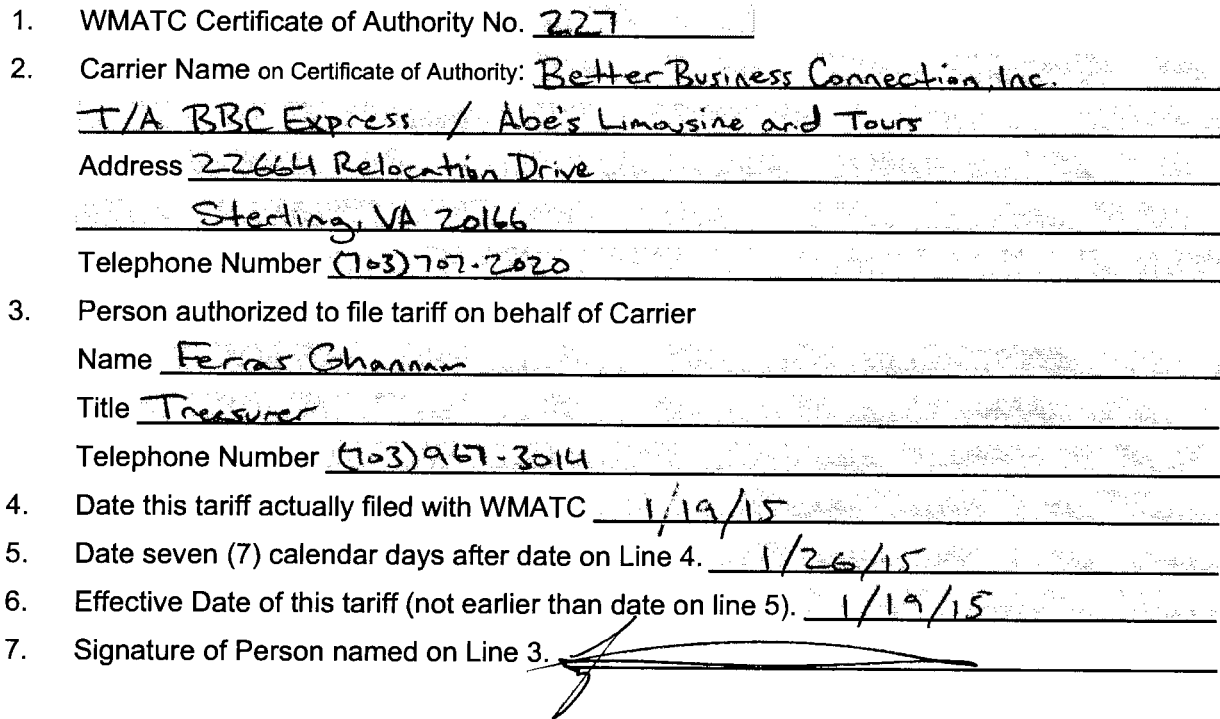 1. WMATC Certificate of Authority No. 227
2. Carrier Name on Certificate of Authority: Better Business Connection, Inc.
T/A BBC Express / Abe's Limousine and Tours
Address 22664 Relocation Drive
Sterling, VA 20166
Telephone Number (703)707-2020
3. Person authorized to file tariff on behalf of Carrier
Name Ferras Ghannam
Title Treasurer
Telephone Number (703)967-3014
4. Date this tariff actually filed with WMATC 1/19/15
5. Date seven (7) calendar days after date on Line 4. 1/26/15
6. Effective Date of this tariff (not earlier than date on line 5). 1/19/15
7. Signature of Person named on Line 3.